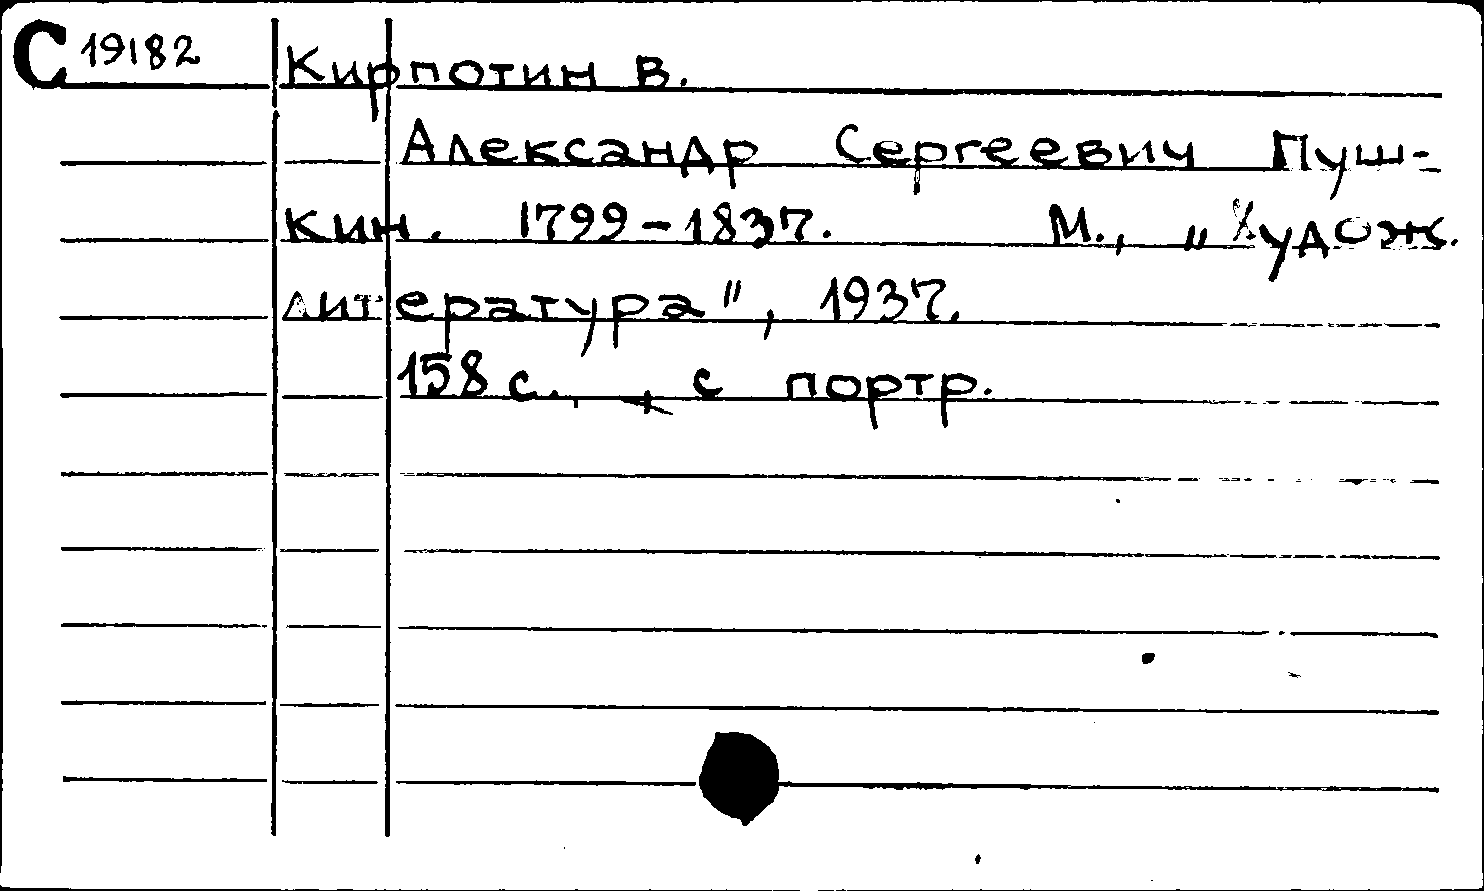 С 19182 Кирпотин В.
Александр Сергеевич Пуш-
кин. 1799-1837. М., "Худож.
литература", 1937.
158 с., с портр.